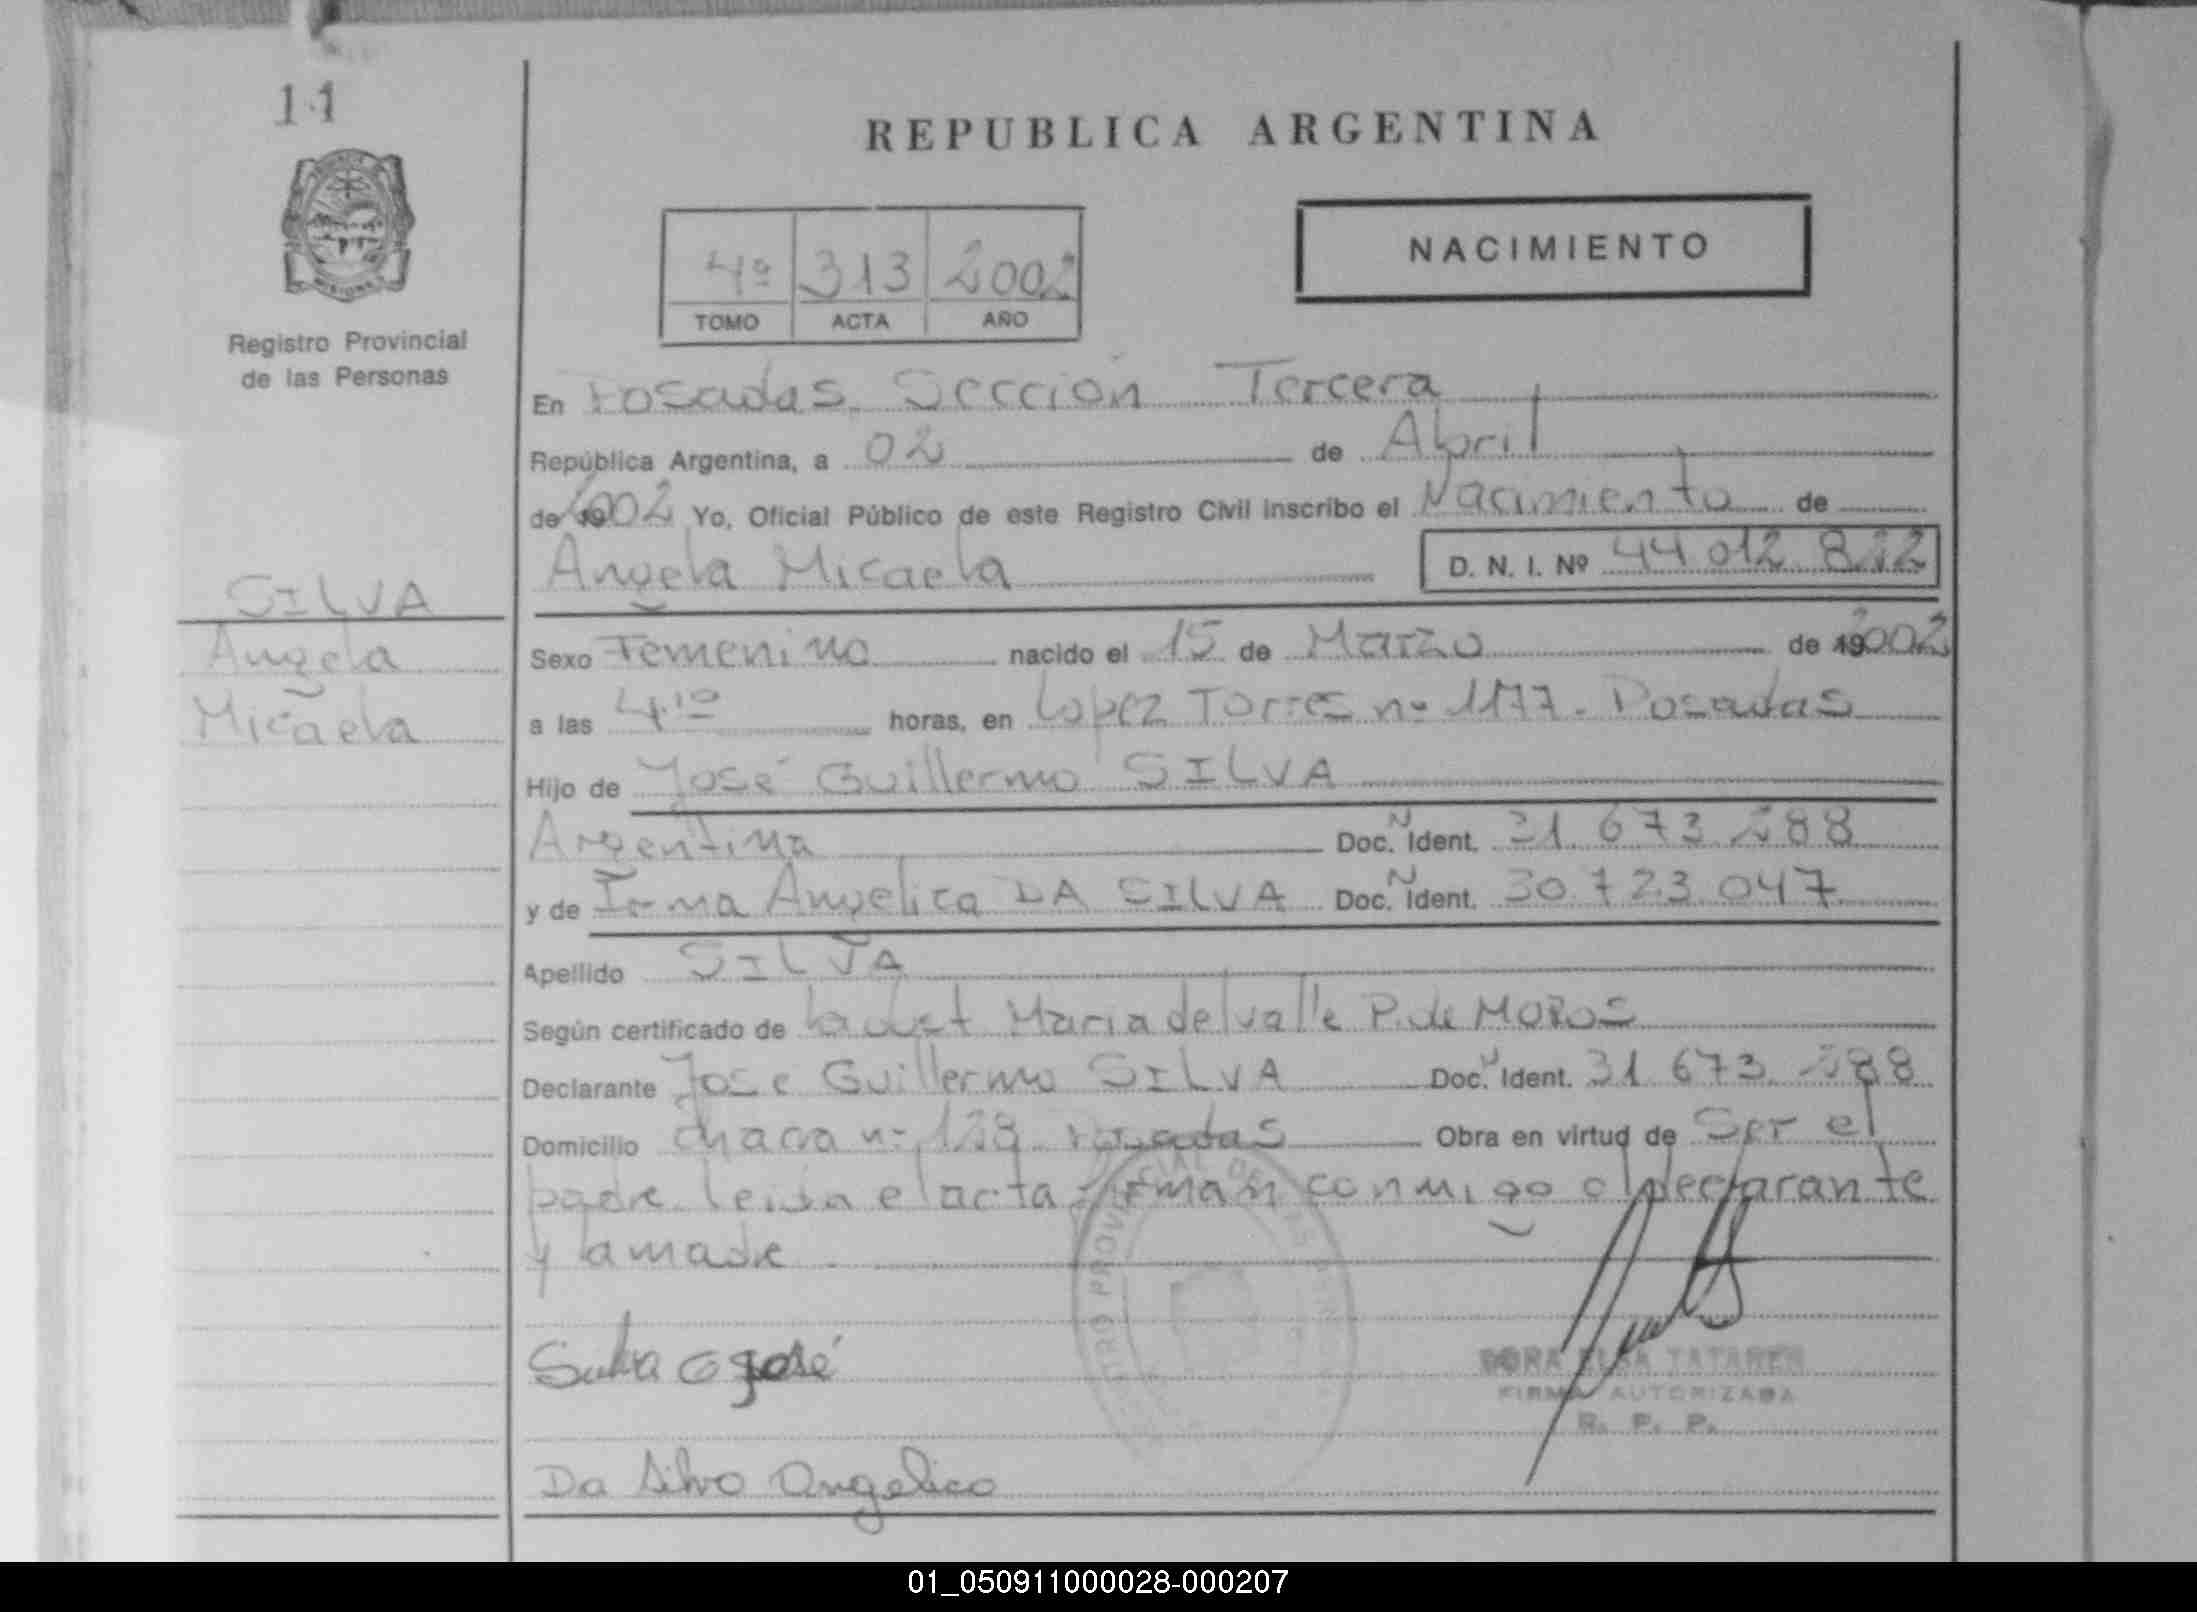 11
REPUBLICA ARGENTINA
NACIMIENTO
4º 313 2002
TOMO ACTA AÑO
Registro Provincial
de las Personas
En Posadas Sección Tercera
República Argentina, a 02 de Abril
de 2002 Yo, Oficial Público de este Registro Civil inscribo el Nacimiento de
Angela Micaela D. N. I. Nº 44 012 812
SILVA
Angela
Micaela
Sexo Femenino nacido el 15 de Marzo de 2002
a las 4.10 horas, en Lopez Torres nº 1177. Posadas
Hijo de José Guillermo SILVA
Argentina Doc. N Ident. 31 673 288
y de Irma Angelica DA SILVA Doc. N Ident. 30 723 047
Apellido SILVA
Según certificado de Maria del valle P. de MOROS
Declarante Jose Guillermo SILVA Doc. N Ident. 31 673 288
Domicilio chacra nº 128 Posadas Obra en virtud de Ser el
padre leida el acta firman conmigo el declarante
y la madre
REGISTRO PROVINCIAL DE LAS
Silva G José
DORA ELSA
FIRMA AUTORIZADA
R. P. P.
Da Silva Angelica
01_050911000028-000207